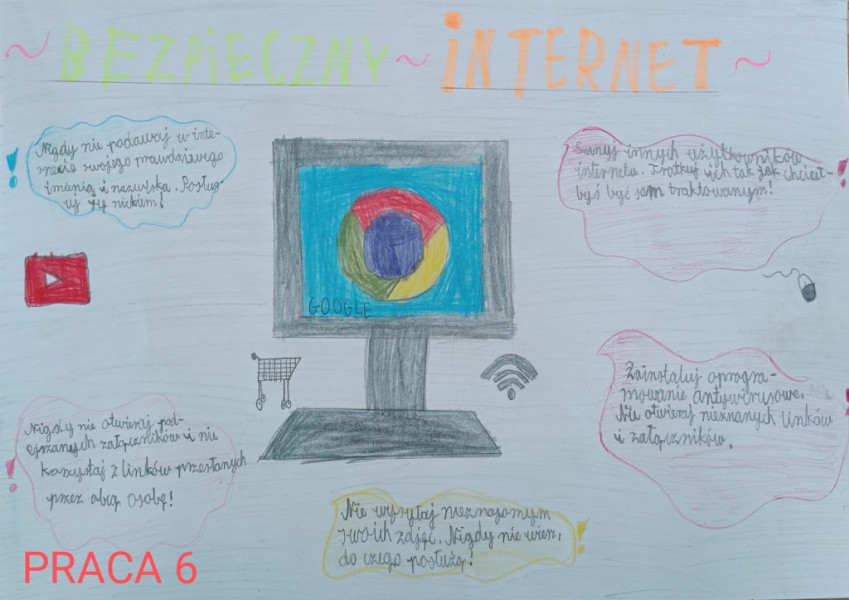 ~ BEZPIECZNY ~ INTERNET ~
Nigdy nie podawaj w inte-
rnecie swojego prawdziwego
imienia i nazwiska. Posłuż
uj się nickiem!
Szanuj innych użytkowników
internetu. Traktuj ich tak jak chciał-
byś być sam traktowanym!
GOOGLE
Zainstaluj oprogra-
mowanie antywirusowe.
Nie otwieraj nieznanych linków
i załączników.
Nigdy nie otwieraj pod-
ejrzanych załączników i nie
korzystaj z linków przesłanych
przez obcą osobę!
Nie wysyłaj nieznajomym
swoich zdjęć. Nigdy nie wiesz,
do czego posłużą!
PRACA 6